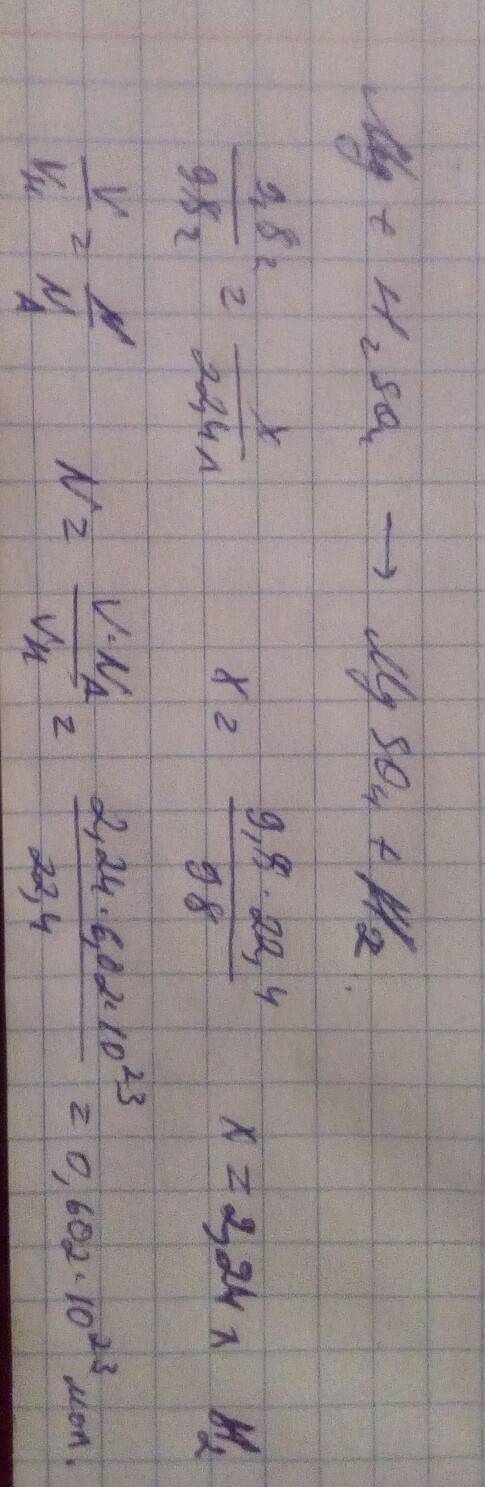 Mg + H₂SO₄ → MgSO₄ + H₂.
9,8г/98г = x/22,4л   x = 9,8·22,4/98   x = 2,24 л H₂
V/Vн = N/N_A   N = V·N_A/Vн = 2,24·6,02·10²³/22,4 = 0,602·10²³ мол.